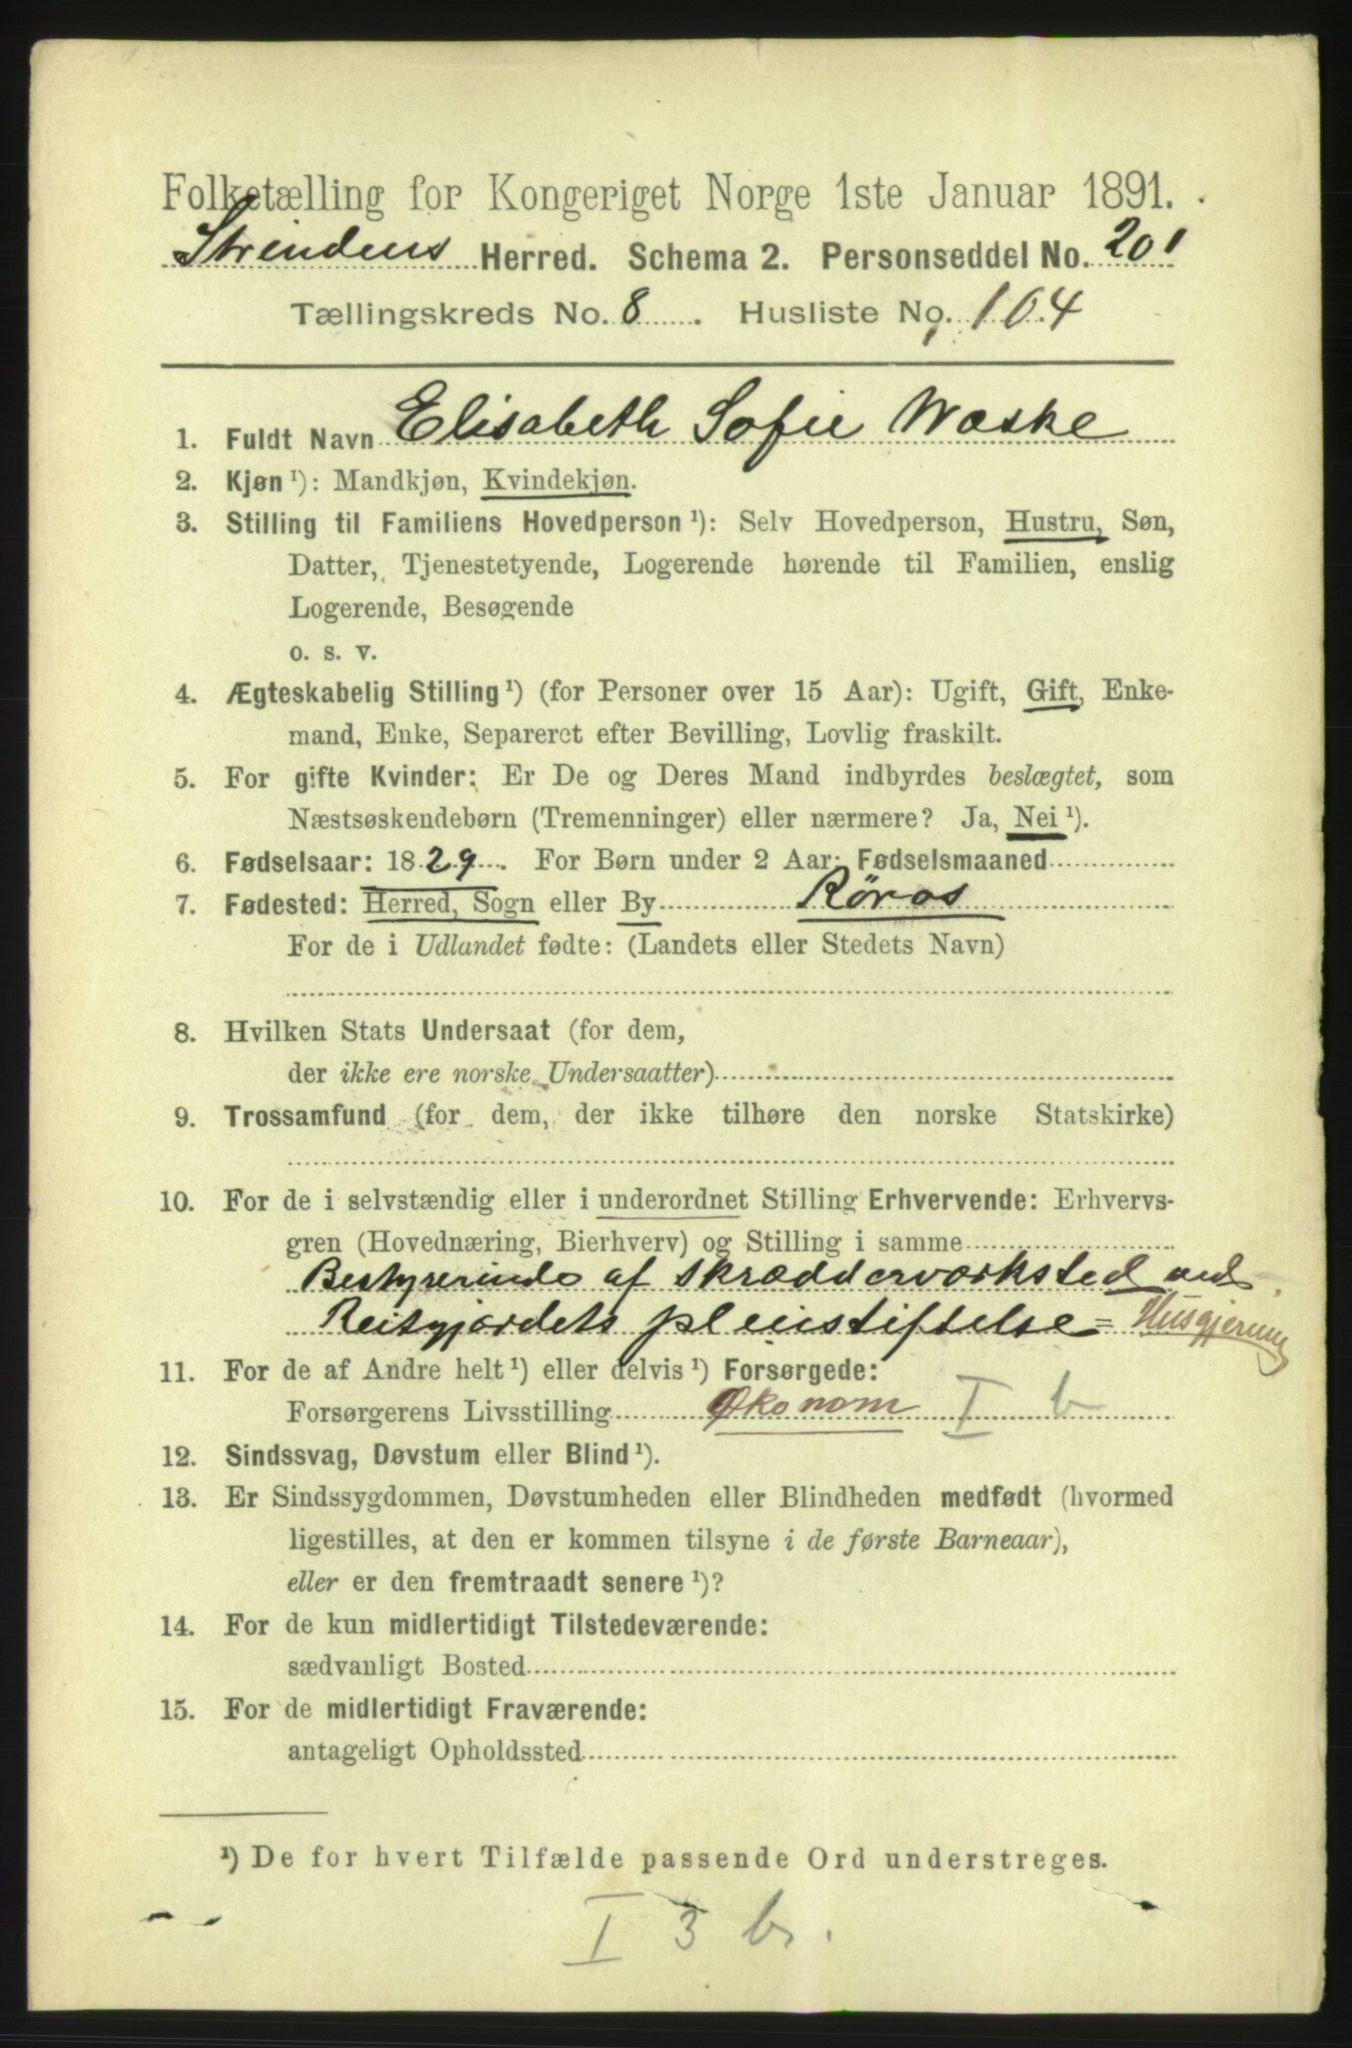 Folketælling for Kongeriget Norge 1ste Januar 1891.
Strindens Herred. Schema 2. Personseddel No. 201
Tællingskreds No. 8. Husliste No. 104
1. Fuldt Navn Elisabeth Sofie Waske
2. Kjøn ¹): Mandkjøn, Kvindekjøn.
3. Stilling til Familiens Hovedperson ¹): Selv Hovedperson, Hustru, Søn,
Datter, Tjenestetyende, Logerende hørende til Familien, enslig
Logerende, Besøgende
o. s. v.
4. Ægteskabelig Stilling ¹) (for Personer over 15 Aar): Ugift, Gift, Enke-
mand, Enke, Separeret efter Bevilling, Lovlig fraskilt.
5. For gifte Kvinder: Er De og Deres Mand indbyrdes beslægtet, som
Næstsøskendebørn (Tremenninger) eller nærmere? Ja, Nei ¹).
6. Fødselsaar: 1829. For Børn under 2 Aar: Fødselsmaaned
7. Fødested: Herred, Sogn eller By Röros
For de i Udlandet fødte: (Landets eller Stedets Navn)
8. Hvilken Stats Undersaat (for dem,
der ikke ere norske Undersaatter)
9. Trossamfund (for dem, der ikke tilhøre den norske Statskirke)
10. For de i selvstændig eller i underordnet Stilling Erhvervende: Erhvervs-
gren (Hovednæring, Bierhverv) og Stilling i samme
Bestyrerinde af skrædderværksted ved
Reitgjærdets pleiestiftelse = Husgjerning
11. For de af Andre helt ¹) eller delvis ¹) Forsørgede:
Forsørgerens Livsstilling Økonom I b
12. Sindssvag, Døvstum eller Blind ¹).
13. Er Sindssygdommen, Døvstumheden eller Blindheden medfødt (hvormed
ligestilles, at den er kommen tilsyne i de første Barneaar),
eller er den fremtraadt senere ¹)?
14. For de kun midlertidigt Tilstedeværende:
sædvanligt Bosted
15. For de midlertidigt Fraværende:
antageligt Opholdssted
¹) De for hvert Tilfælde passende Ord understreges.
I 3 b.